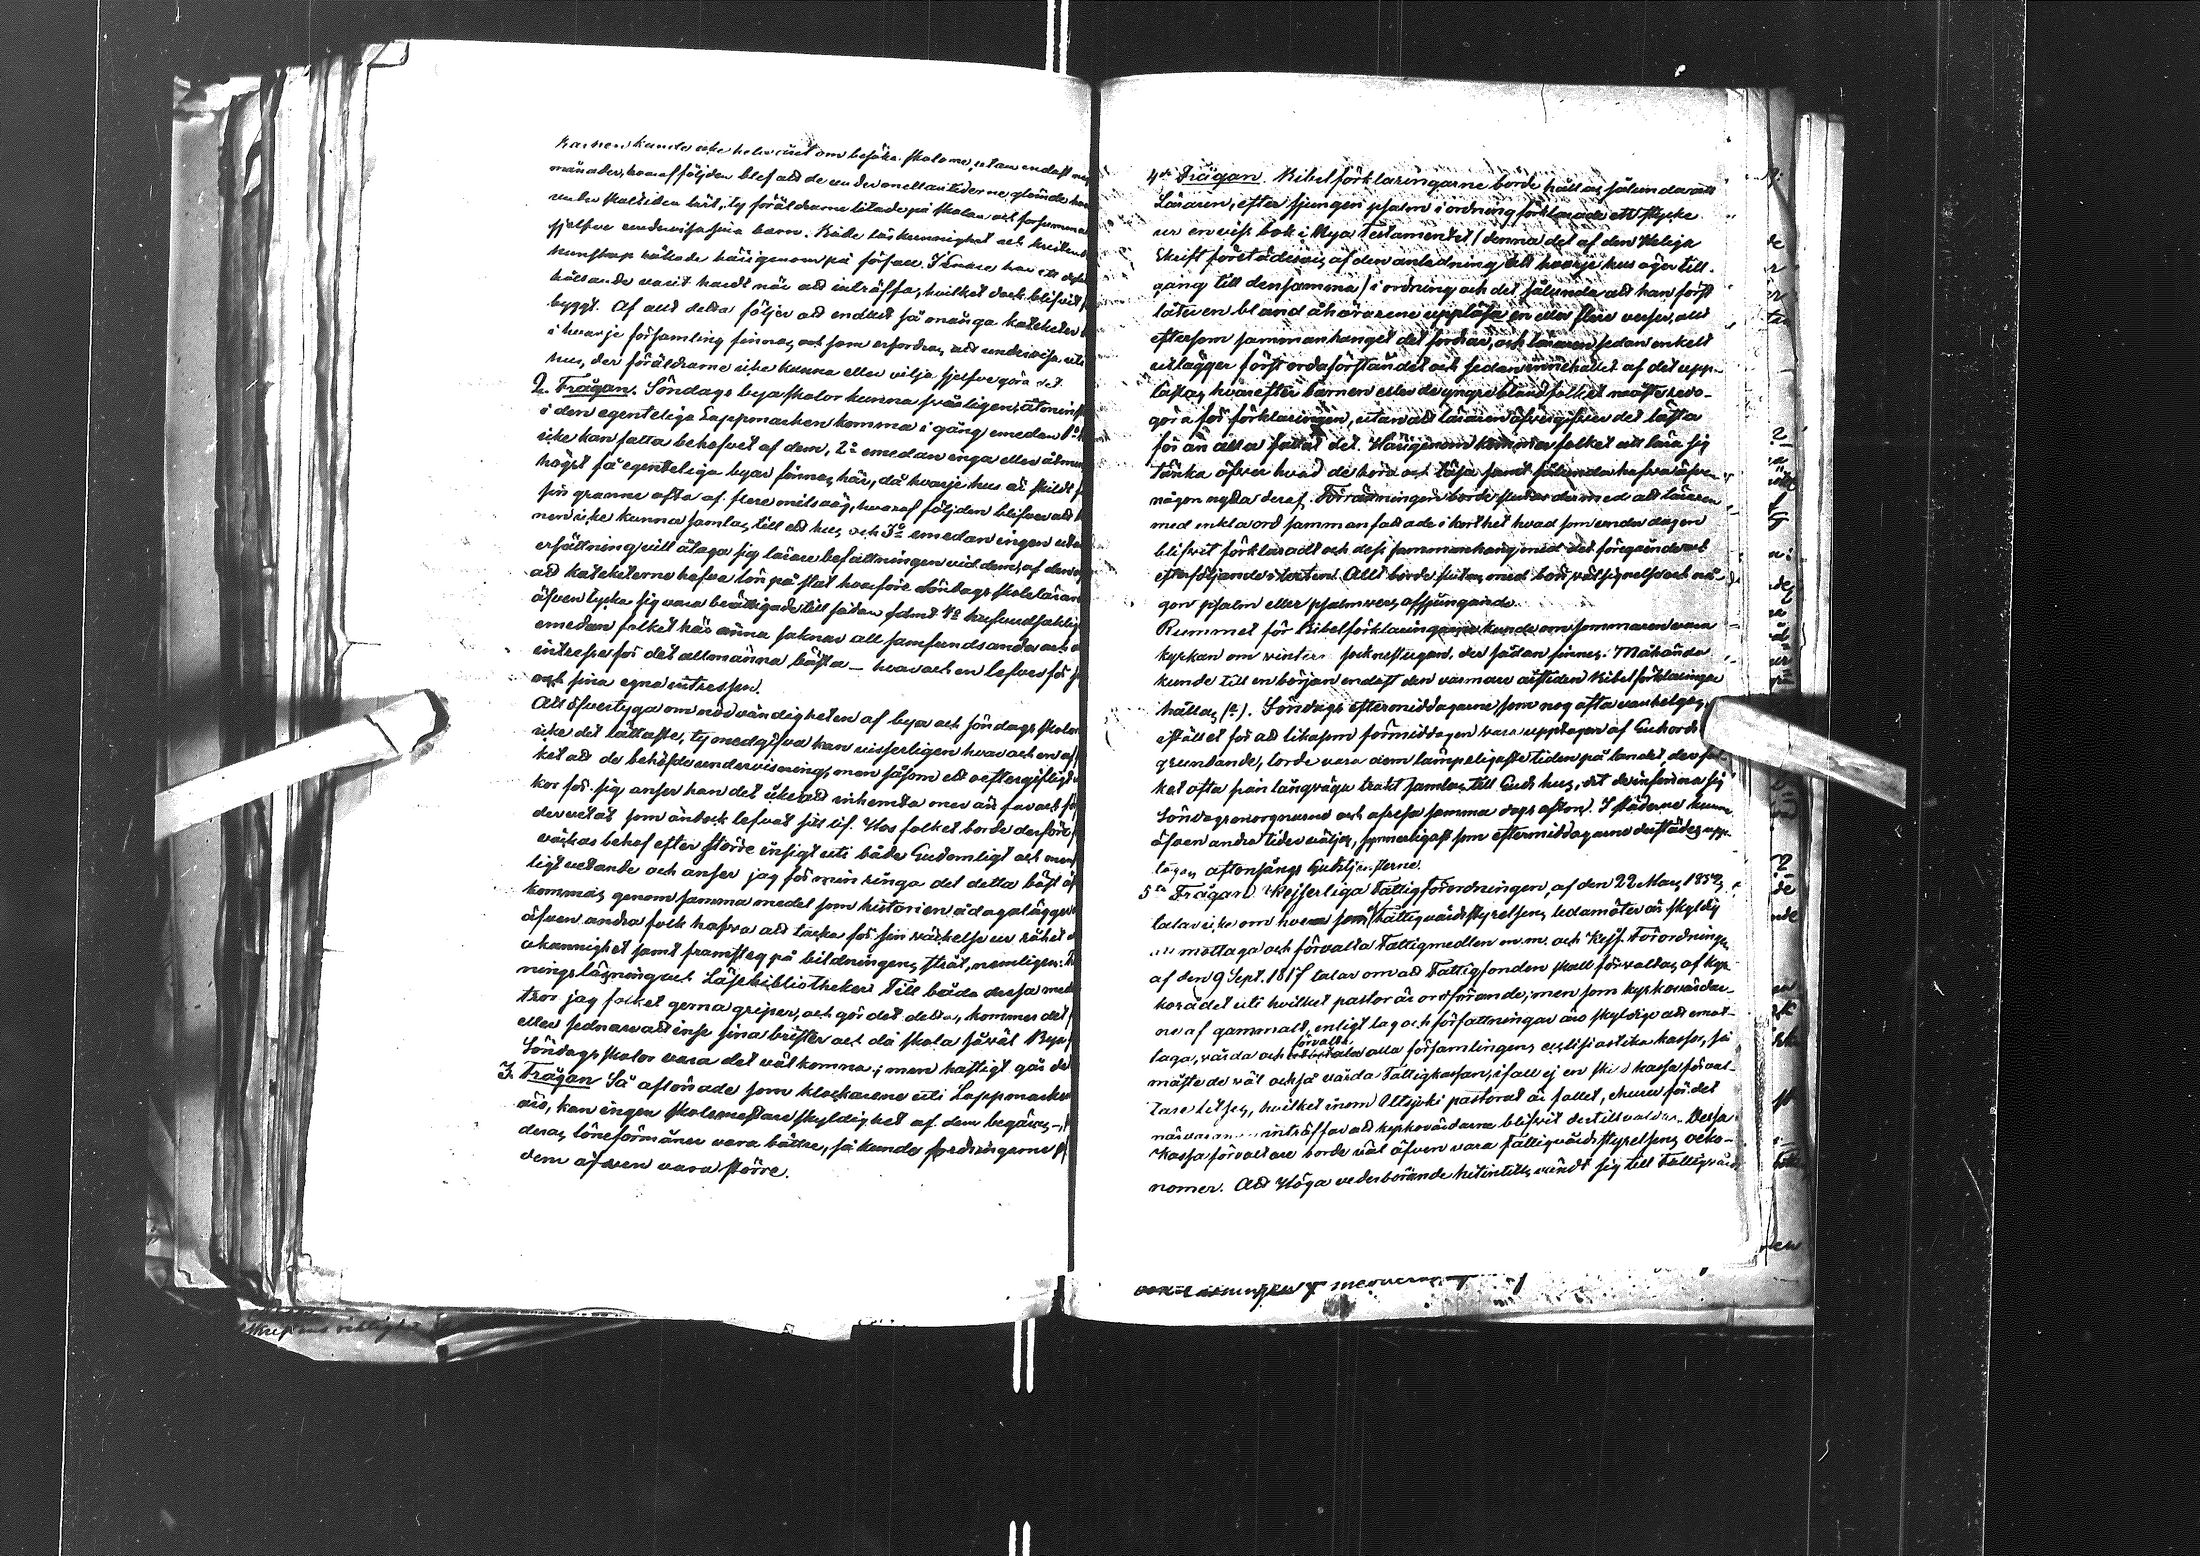 Barnen kunde icke hela året om besöka skolorne, utan endast
månader, hvaraf följden blef att de under mellantiderne glömde
under skoltiden lärt, ty föräldrarne litade på skolan och försumma
sjelfve undervisa sina barn. Både läskunnighet och kristen
kunskap råkade härigenom på förfall. I Enare har ett
hållande varit hardt när att inträffa, hvilket dock blifvit
byggt. Af allt detta följer att endast så många kateketer
i hvarje församling finnas, och som erfordras att undervisa uti
hus, der föräldrarne icke kunna eller vilja sjelfve göra det.
2. Frågan. Söndags byaskolor kunna svårligen, åtmin
i den egenteliga Lappmarken komma i gång emedan 1o
icke kan fatta behofvet af dem, 2o emedan inga eller åtmin
högst få egenteliga byar finnas här, då hvarje hus är skildt
sin granne ofta af flere mils väg, hvaraf följden blifver att
nen icke kunna samlas till ett hus, och 3o emedan ingen utan
ersättning vill åtaga sig lärare befattningen vid dem, af den
att kateketerne hafva lön på stat hvarföre Söndags skolelärar
äfven tycka sig vara berättigade till sådan samt 4o hufvudsaklig
emedan folket här ännu saknar all samfundsanda och
intresse för det allmänna bästa – hvar och en lefver för
och sina egna intressen.
Att öfvertyga om nödvändigheten af bya och söndags skolor
icke det lättaste, ty medgifva kan visserligen hvar och en af
ket att de behöfde undervisning, men såsom ett oeftergifligt
kor för sig anser han det icke att inhemta mer än far och
der vetat som ändock lefvat sitt lif. Hos folket borde derföre
väckas behof efter större insigt uti både Gudomligt och men
ligt vetande och anser jag för min ringa del detta bäst
kommas genom samma medel som historien ådagalägger
äfven andra folk hafva att tacka för sin väckelse ur råhet
okunnighet samt framsteg på bildningens stråt, nemligen:
ningsläsning och Läsebibliotheker. Till båda dessa med
tror jag folket gerna griper, och gör det detta, kommer det
eller sednare att inse sina brister och då skola såväl Bya
Söndags skolor vara det välkomna; men hastigt går de
3. Frågan Så aflönade som klockarene uti Lappmarken
äro, kan ingen skolemästare skyldighet af dem begäras –
deras löneförmåner vara bättre, så kunde fordringarne
dem äfven vara större.
4de Frågan. Bibelförklaringarne borde hållas sålunda att
Läraren, efter sjungen psalm i ordning förklarade ett stycke
ur en viss bok i Nya Testamentet (denna del af den Heliga
Skrift företrädesvis af den anledning att hvarje hus äger till-
gång till densamma) i ordning och det sålunda att han först
låter en bland åhörarene uppläsa en eller flere verser, allt
eftersom sammanhanget det fordrar, och läraren sedan enkelt
utlägger först ordaförståndet och sedan innehållet af det upp-
lästa, hvarefter barnen eller de yngre bland folket måste redo-
göra för förklaringen, utan att läraren öfvergifver det lästa
för än alla fattat det. Härigenom kommer folket att lära sig
tänka öfver hvad de höra och läsa samt sålunda hafva äfven
någon nytta deraf. Förrättningen borde slutas dermed att läraren
med enkla ord sammanfattade i korthet hvad som under dagen
blifvit förklaradt och dess sammanhang med det föregående och
efterföljande i texten. Allt borde slutas med bön, välsignelse och nå-
gon psalm eller psalmvers afsjungande.
Rummet för Bibelförklaringarne kunde om sommaren vara
kyrkan om vintern sockenstugan, der sådan finnes. Måhända
kunde till en början endast den varmare årstiden Bibelförklaringar
hållas (?). Söndags eftermiddagarne, som nog ofta vanhelgas,
istället för att likasom förmiddagen vara upptagen af Guds ords
grundande, torde vara den lämpeligaste tiden på landet, der fol-
ket ofta från långväga trakt samlas till Guds hus, dit de infinna sig
Söndagsmorgnarne och afresa samma dags afton. I städerne kunna
äfven andra tider väljas, synnerligast som eftermiddagarne derstädes upp-
tagas aftonsångs Gudstjensterne.
5te Frågan Kejserliga Fattigförordningen, af den 22 Mars 1852,
talar icke om hvem som af fattigvårdsstyrelsens ledamöter är skyldig
att mottaga och förvalta Fattigmedlen m.m. och Kejs. Förordningen
af den 9 Sept. 1817 talar om att Fattigfonden skall förvaltas af kyr-
korådet uti hvilket pastor är ordförande; men som kyrkovärdar-
ne af gammalt, enligt lag och författningar äro skyldige att emot-
taga, vårda och förvalta alla församlingens ecclesiastika kassor, så
måste de väl också vårda Fattigkassan, ifall ej en skild kassaförval-
tare tillses, hvilket inom Utsjoki pastorat är fallet, ehuru för det
närvarande inträffar att kyrkovärdarne blifvit dertill valde. Dessa
Kassaförvaltare borde väl äfven vara Fattigvårdsstyrelsens oeko-
nomer. Att Höga vederbörande hitintills vändt sig till Fattigvårds